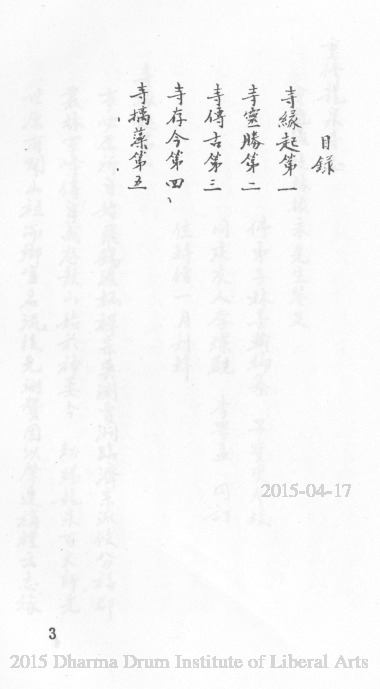 目錄
寺緣起第一
寺靈勝第二
寺傳古第三
寺存今第四
寺摛藻第五
2015-04-17
3
2015 Dharma Drum Institute of Liberal Arts